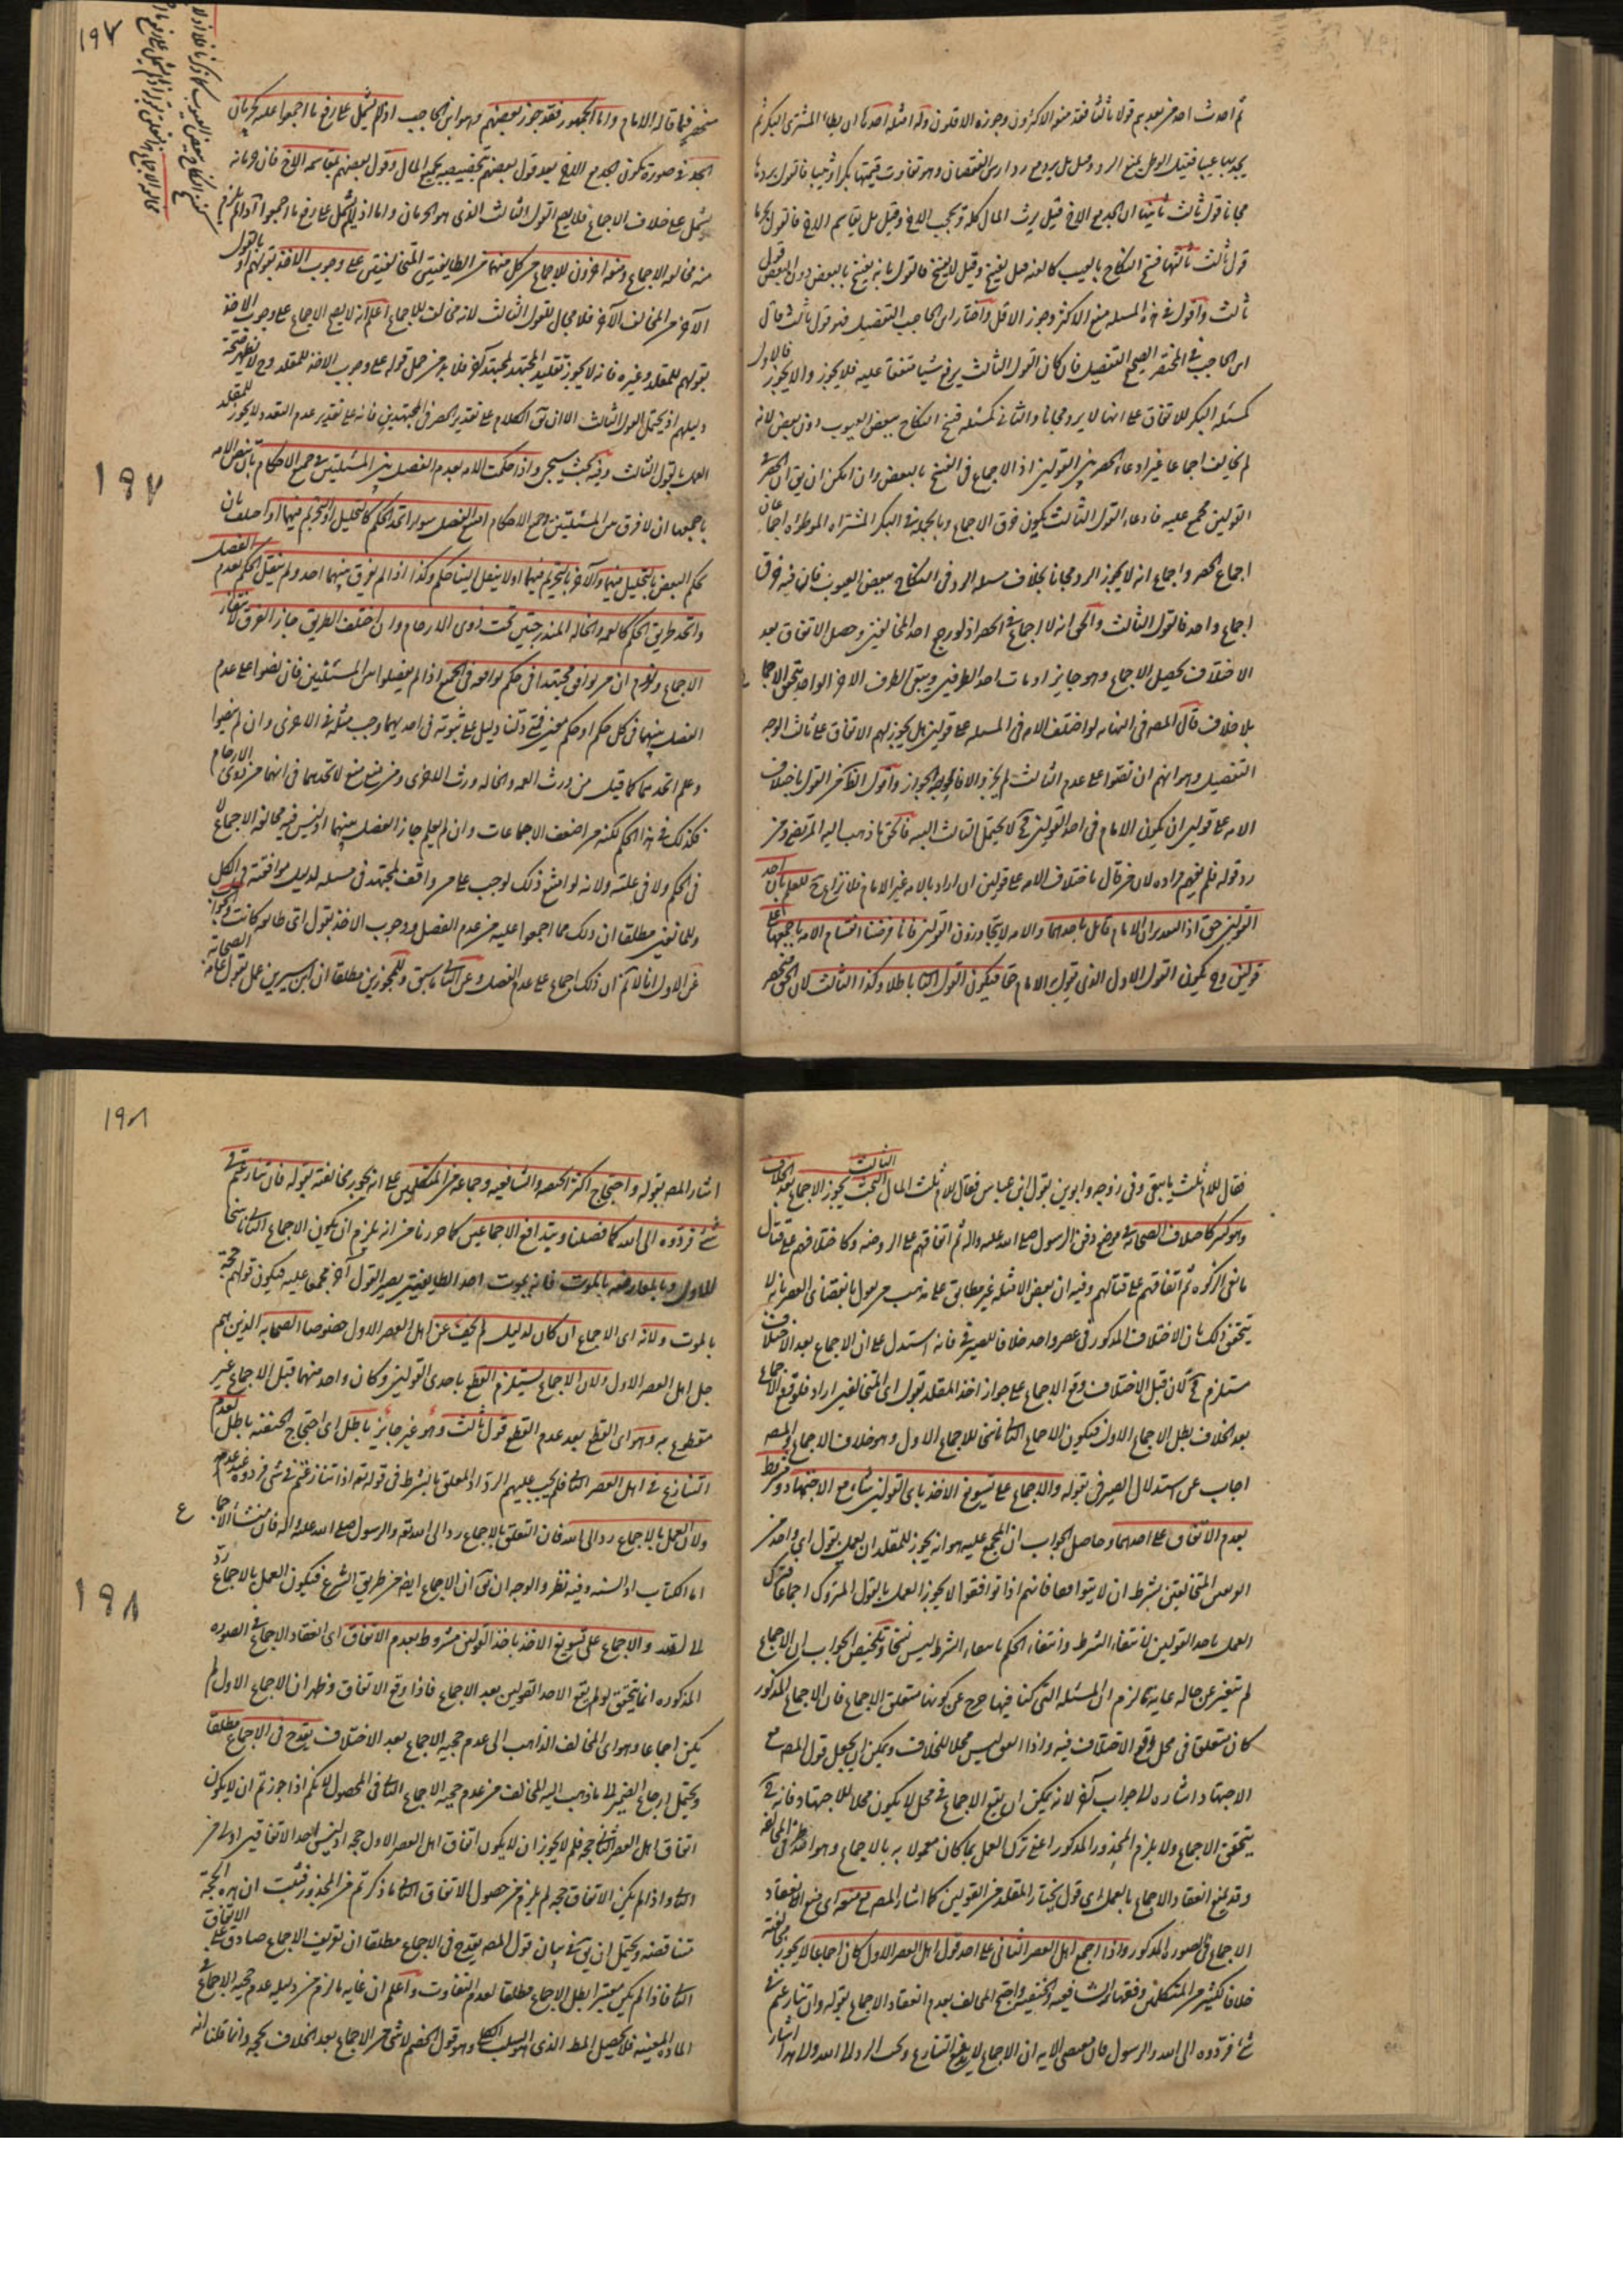 ثم احدث احد من بعدهم قولا ثالثا فقد منعه الاكثرون وجوزه الاقلون وله امثلة احدها ان يطأ المشترى البكر ثم
يجد بها عيبا فقيل الوطى يمنع الرد وقيل بل يردها مع رد ارش النقصان وهو تفاوت قيمتها بكرا وثيبا فالقول بردها
مجانا قول ثالث ثانيها ان الجد مع الاخ قيل يرث المال كله ويحجب الاخ وقيل بل يقاسم الاخ فالقول بحرمانه
قول ثالث ثالثها فسخ النكاح بالعيب قيل يفسخ وقيل لا يفسخ فالقول بانه يفسخ بالبعض دون البعض قول
ثالث واقول فى هذه المسئلة منع الاكثر وجوز الاقل واختار ابن الحاجب التفصيل فهو قول ثالث قال
ابن الحاجب فى المختصر الصحيح التفصيل فان كان القول الثالث يرفع شيئا متفقا عليه فلا يجوز والا يجوز فالاول
كمسئلة البكر للاتفاق على انها لا يرد مجانا والثانى كمسئلة فسخ النكاح ببعض العيوب دون بعض لانه
لم يخالف اجماعا غير ادعاء الحصر بين القولين اذ الاجماع فى الفسخ بالبعض وان امكن ان يق ان الحصر فى
القولين مجمع عليه فادعاء القول الثالث يكون خرق الاجماع وبالجملة فى البكر المشتراة الموطؤة اجماعان
اجماع الحصر واجماع انه لا يجوز الرد مجانا بخلاف مسئلة الرد فى النكاح ببعض العيوب فان فيه خرق
اجماع واحد فالقول الثالث والحق انه لا اجماع فى الحصر اذ لو رجع احد المخالفين وحصل الاتفاق بعد
الاختلاف يحصل الاجماع وهو جايز او مات احد الطرفين ويبقى الطرف الاخر الواحد يتحقق الاجماع
بلا خلاف قال المصـ فى النهايه لو اختلف الامة فى المسئلة على قولين هل يجوز لهم الاتفاق على ثالث الوجه
التفصيل وهو انهم ان نصوا على عدم الثالث لم يجز والا فالوجه الجواز واقول الظاهر القول باختلاف
الامة على قولين ان يكون الامام فى احد القولين فح لا يحتمل الثالث البتة فالحق ما ذهب اليه المرتضى ومن
رد قوله فلم يفهم مراده لان من قال باختلاف الامة على قولين ان اراد بالامة غير الامام فلا نزاع ح للعلم بان احد
القولين حق اذ التقدير ان الامام قائل باحدهما والامة لا يتجاوزون القولين فانا فرضنا انقسام الامة باجمعها على
قولين وح يكون القول الاول الذى يقول به الامام حقا فيكون القول الثانى باطلا وكذا الثالث لان الحق منحصر
منحصر فيما قاله الامام واما الجمهور فقد جوز بعضهم وهو ابن الحاجب اذا لم يشتمل على رفع ما اجمعوا عليه كحرمان
الجد فى صورة تكون الجد مع الاخ بعد قول بعضهم بتخصيصه بجميع المال وقول بعضهم بمقاسمة الاخ فان حرمانه
يشتمل على خلاف الاجماع فلا يصح القول الثالث الذى هو الحرمان واما اذا لم يشتمل على رفع ما اجمعوا
منه مخالفة الاجماع ومنعه اخرون للاجماع من كل منهما من الطايفتين المتخالفتين على وجوب الاخذ بقولهم او بالقول
الآخر من المخالف الآخر فلا مجال للقول الثالث لانه مخالف للاجماع اعلم انه لا يصح الاجماع على وجوب الاخذ
بقولهم للمقلد وغيره فانه لا يجوز تقليد المجتهد لمجتهد آخر فلا بد من حمل قوله على وجوب الاخذ للمقلد وح لا يظهر صحة
دليلهم اذ يحتمل القول الثالث الا ان يق الكلام على تقدير الحصر فى المجتهدين فانه على تقدير عدم التعدد لا يجوز للمقلد
العمل بالقول الثالث وفيه بحث سيجئ واذا حكمت الامة بعدم الفصل بين المسئلتين فى جميع الاحكام بان ينص الامة
باجمعها ان لا فرق بين المسئلتين فى جميع الاحكام امتنع الفصل سواء اتحد الحكم كالتحليل او التحريم فيهما او اختلف بان
حكم البعض بالتحليل فيهما والآخر بالتحريم فيهما او لا ينقل الينا حكم وكذا اذا لم يفرق بينهما احد ولم ينقل الحكم بعدم الفصل
واتحد طريق الحكم كالعمة والخالة المندرجتين تحت ذوى الارحام وان اختلف الطريق جاز الفرق لانتفاء
الاجماع ولزوم ان من وافق مجتهدا فى حكم يوافقه فى الجميع اذا لم يفصلوا بين المسئلتين فان نصوا على عدم
الفصل بينهما فى كل حكم او حكم معين فمتى دلنا دليل على ثبوته فى احديهما وجب مثله فى الاخرى وان لم ينصوا
وعلم اتحاد بينهما كما قيل من ورث العمة والخالة ورث الاخرى ومن منع منع لاتحادهما فى انهما من ذوى الارحام
فكذلك فى هذا الحكم لكنه من اضعف الاجماعات وان لم يعلم جاز الفصل بينهما اذ ليس فيه مخالفة الاجماع لا
فى الحكم ولا فى علته ولانه لو امتنع ذلك لوجب على من وافق المجتهد فى مسئلة لدليل موافقته فى الكل
وللمانعين مطلقا ان ذلك مما اجمعوا عليه من عدم الفصل ووجوب الاخذ بقول اى طائفة كانت والجواب
عن الاول انا لا نم ان ذلك اجماع على عدم الفصل وعن الثانى ما سبق وللمجوزين مطلقا ان ابن سيرين عمل بقول عامة الصحابة
١٩٧
١٩٧
فقال للام ثلث ما يبقى وفى زوجه وابوين بقول ابن عباس فقال للام ثلث المال البحث الثالث يجوز الاجماع بعد الخلاف
وهو كثير كاختلاف الصحابة فى موضع دفن الرسول صلى الله عليه واله ثم اتفاقهم على الروضه وكاختلافهم على قتال
مانعى الزكوة ثم اتفاقهم على قتالهم وفيه ان بعض الامثلة غير مطابق على مذهب من يقول بانقضاء العصر فانه لا
يتحقق ذلك بان الاختلاف المذكور فى عصر واحد خلافا للصيرفى فانه استدل على ان الاجماع بعد الاختلاف
مستلزم لان قبل الاختلاف وقع الاجماع على جواز اخذ المقلد بقول اى المتخالفين اراد فلو وقع الاجماع
بعد الخلاف بطل الاجماع الاول فيكون الاجماع الثانى نسخا للاجماع الاول وهو خلاف الاجماع والمصـ
اجاب عن استدلال الصيرفى بقوله والاجماع على تسويغ الاخذ باى القولين شاء مع الاجتهاد مشروط
بعدم الاتفاق على احدهما وحاصل الجواب ان المجمع عليه هو انه يجوز للمقلد ان يعمل بقول اى واحد من
القولين المتخالفين بشرط ان لا يتوافقا فانهم اذا توافقوا لا يجوز العمل بالقول المتروك اجماعا فترك
العمل باحد القولين لانتفاء الشرط وانتفاء الحكم بانتفاء الشرط ليس نسخا وتلخيص الجواب ان الاجماع
لم يتغير عن حاله غاية ما لزم ان المسئلة التى كنا فيها خرج عن كونها متعلق الاجماع فان الاجماع المذكور
كان متعلقا فى محل وقع الاختلاف فيه واذا اتفق ليس محلا للخلاف ويمكن ان يجعل قول المصـ مع
الاجتهاد اشارة الى جواب آخر لانه يمكن ان يقع الاجماع فى محل لا يكون محلا للاجتهاد فانه ح
يتحقق الاجماع ولا يلزم المحذور المذكور اعنى ترك العمل بما كان معمولا به بالاجماع وهو احد طرفى المخالفة
وقد يمنع انعقاد الاجماع بالعمل اى قول يختار المقلد من القولين كما اشار المصـ مع منعه اى منع انعقاد
الاجماع فى الصورة المذكور واذا اجمع اهل العصر الثانى على احد قولى اهل العصر الاول كان اجماعا لا يجوز مخالفته
خلافا لكثير من المتكلمين وفقهاء الشافعية والحنفية واحتج المخالف بعدم انعقاد الاجماع بقوله وان تنازعتم فى
شئ فردوه الى الله والرسول فان مقتضى الاية ان الاجماع لا يرفع التنازع ويجب الرد الى الله والى هذا اشار
اشار المصـ بقوله واحتجاج اكثر الحنفية والشافعية وجماعة من المتكلمين على انه يجوز مخالفته بقوله فان تنازعتم فى
شئ فردوه الى الله كما فصلنا وبتدافع الاجماعين كما حررنا من انه يلزم ان يكون الاجماع الثانى ناسخا
للاول وبالمعارضه بالموت فانه بموت احد الطايفتين يصير القول الآخر مجمعا عليه فيكون قولهم حجة
بالموت ولانه اى الاجماع ان كان لدليل لم يخف عن اهل العصر الاول خصوصا الصحابة الذين هم
جل اهل العصر الاول ولان الاجماع يستلزم القطع باحدى القولين وكان واحد منهما قبل الاجماع غير
مقطوع به وهو اى القطع بعد عدم القطع قول ثالث وهو غير جايز باطل اى احتجاج الحنفية باطل لعدم
التنازع فى اهل العصر الثانى فلم يجب عليهم الرد اذ المعلق بالشرط فى قوله تع اذا تنازعتم فى شئ فردوه عدم عند عدمه
ولان العمل بالاجماع رد الى الله فان التعلق بالاجماع رد الى الله تع والرسول صلى الله عليه واله فان منشأ الاجماع
اما الكتاب او السنه وفيه نظر والوجه ان يق ان الاجماع ايضا من طريق الشرع فيكون العمل بالاجماع ردا
الى الله والاجماع على تسويغ الاخذ باخذ القولين مشروط بعدم الاتفاق اى انعقاد الاجماع فى الصورة
المذكورة انما يتحقق لو لم يقع لاحد القولين بعد الاجماع فاذا وقع الاتفاق وظهر ان الاجماع الاول لم
يكن اجماعا وهو اى المخالف الذاهب الى عدم حجية الاجماع بعد الاختلاف يقدح فى الاجماع مطلقا
ويحتمل ارجاع الضمير الى ما ذهب اليه المخالف من عدم حجية الاجماع الثانى المحصول لانكم اذا جوزتم ان لا يكون
اتفاق اهل العصر الثانى حجة فلم لا يجوز ان لا يكون اتفاق اهل العصر الاول حجة اذ ليس احد الاتفاقين اولى من
الثانى واذا لم يكن الاتفاق حجة لم يلزم من حصول الاتفاق الثانى ما ذكرتم من المحذور فثبت ان هذه الحجة
متناقضه ويحتمل ان يق فى بيان قول المصـ يقدح فى الاجماع مطلقا ان تعريف الاجماع صادق على الاتفاق
الثانى فاذا لم يكن معتبرا بطل الاجماع مطلقا لعدم التفاوت واعلم ان غاية ما لزم من دليله عدم حجية الاجماع فى
المادة المعينه فلا يحصل المط الذى هو السلب الكلى وهو قول الخصم لا شئ من الاجماع بعد الخلاف بحجة وانا قلنا انه
١٩٨
١٩٨